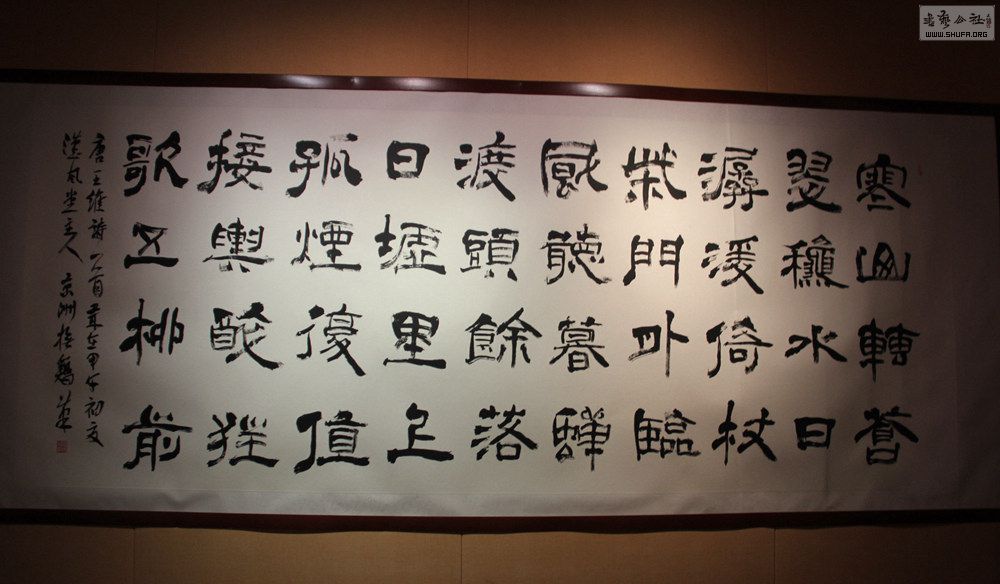 寒山轉蒼
翠穐水日
潺湲倚杖
柴門外臨
風聽暮蟬
渡頭餘落
日墟里上
孤煙復值
接輿醉狂
歌五柳前
唐王維詩一首歲在甲午初夏
漢風堂主人
書藝公社
WWW.SHUFA.ORG